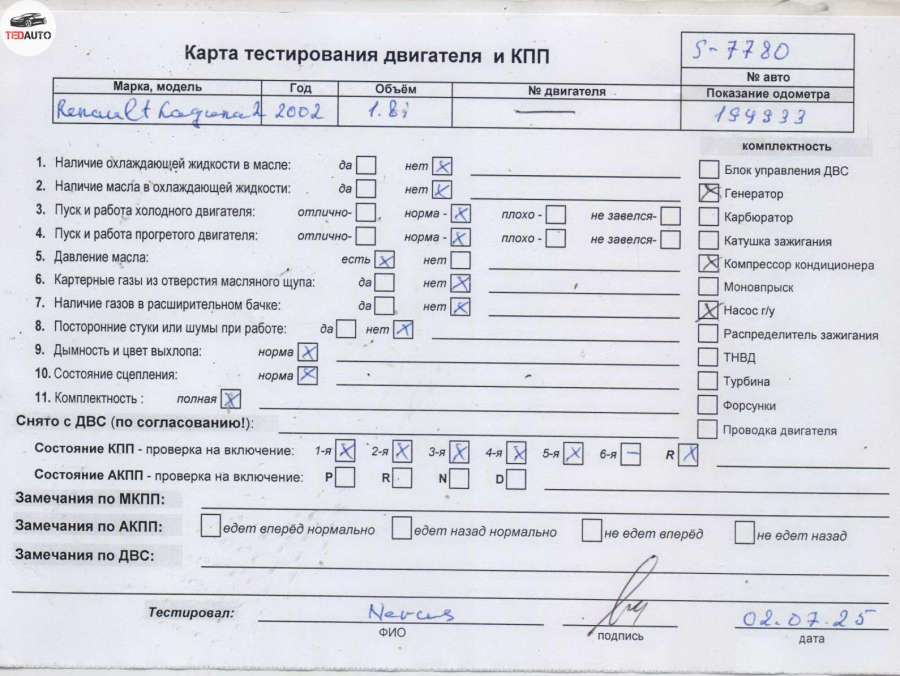 TEDAUTO
Карта тестирования двигателя и КПП
S-7780
№ авто
Марка, модель Год Объём № двигателя Показание одометра
Renault Laguna 2 2002 1.8i — 199933
комплектность
1. Наличие охлаждающей жидкости в масле: да нет X
Блок управления ДВС
2. Наличие масла в охлаждающей жидкости: да нет X
X Генератор
3. Пуск и работа холодного двигателя: отлично- норма - X плохо - не завелся-
Карбюратор
4. Пуск и работа прогретого двигателя: отлично- норма - X плохо - не завелся-
Катушка зажигания
5. Давление масла: есть X нет
X Компрессор кондиционера
6. Картерные газы из отверстия масляного щупа: да нет X
Моновпрыск
7. Наличие газов в расширительном бачке: да нет X
X Насос г/у
8. Посторонние стуки или шумы при работе: да нет X
Распределитель зажигания
9. Дымность и цвет выхлопа: норма X
ТНВД
10. Состояние сцепления: норма X
Турбина
11. Комплектность : полная X
Форсунки
Снято с ДВС (по согласованию!):
Проводка двигателя
Состояние КПП - проверка на включение: 1-я X 2-я X 3-я X 4-я X 5-я X 6-я — R X
Состояние АКПП - проверка на включение: P R N D
Замечания по МКПП:
Замечания по АКПП: едет вперёд нормально едет назад нормально не едет вперёд не едет назад
Замечания по ДВС:
Тестировал: 02.07.25
ФИО подпись дата